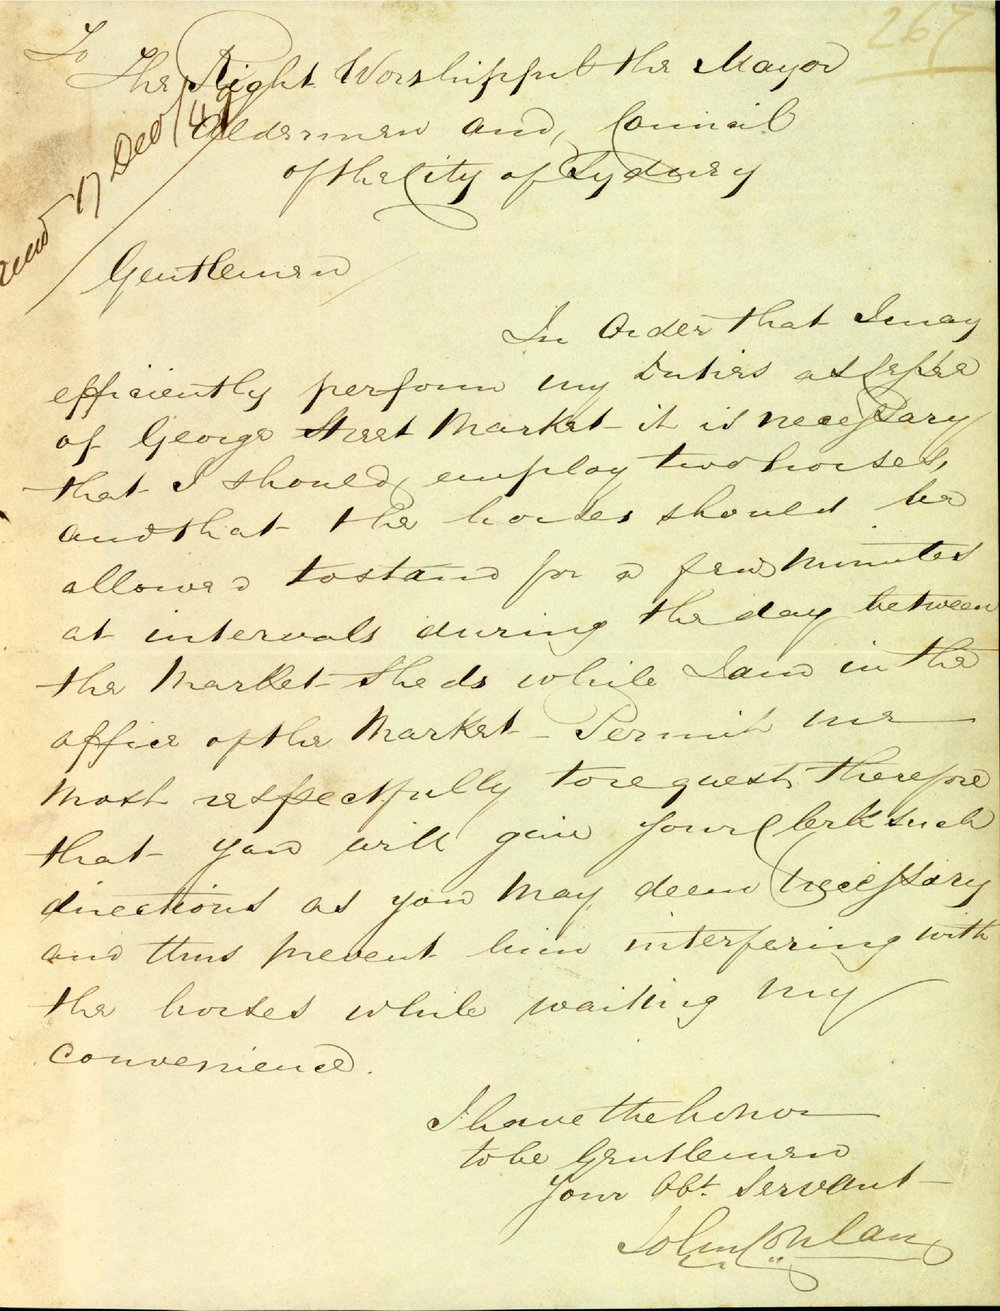 267
To
The Right Worshipful the Mayor
Aldermen and Council
of the City of Sydney
17 Dec/49
Gentlemen
In Order that I may
efficiently perform my Duties as Lessee
of George Street Market it is necessary
that I should employ two horses,
and that the horses should be
allowed to stand for a few Minutes
at intervals during the day between
the Market Sheds while I am in the
office of the Market - Permit me
Most respectfully to request therefore
that you will give your Clerk such
directions as you May deem Necessary
and thus prevent him interfering with
the horses while waiting my
convenience.
I have the honor
to be Gentlemen
Your Obt. Servant
John Conlan